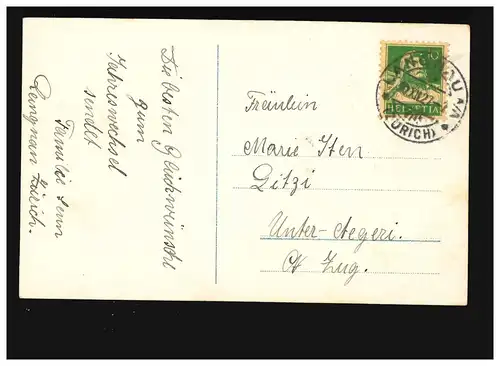 Die besten Glückwünsche
zum
Jahreswechsel
sendet
Familie Senn
Langnau Zürich.
10
HELVETIA
LANGNAU
(ZÜRICH)
Fräulein
Marie Iten
Ditzi
Unter-Aegeri.
Ct Zug.